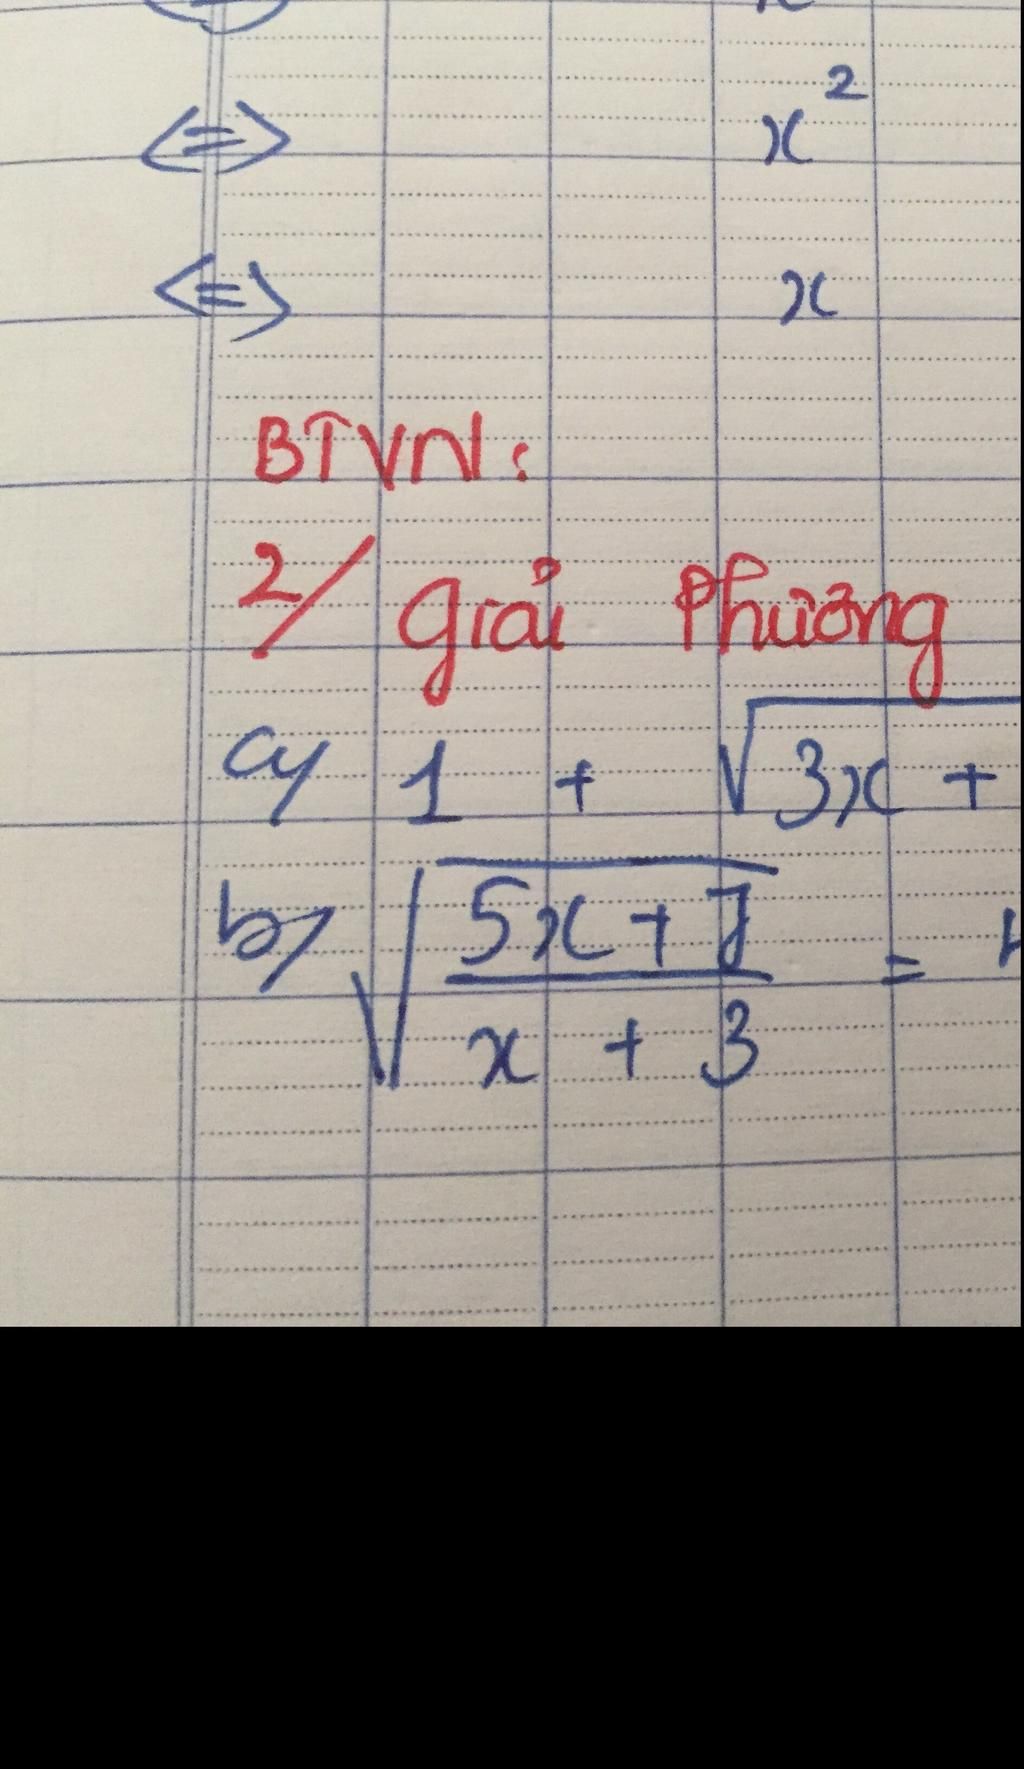 <=> x²
<=> x
BTVN:
2/ Giải Phương
a/ 1 + √3x +
b/ √(5x + 7)/(x + 3) =